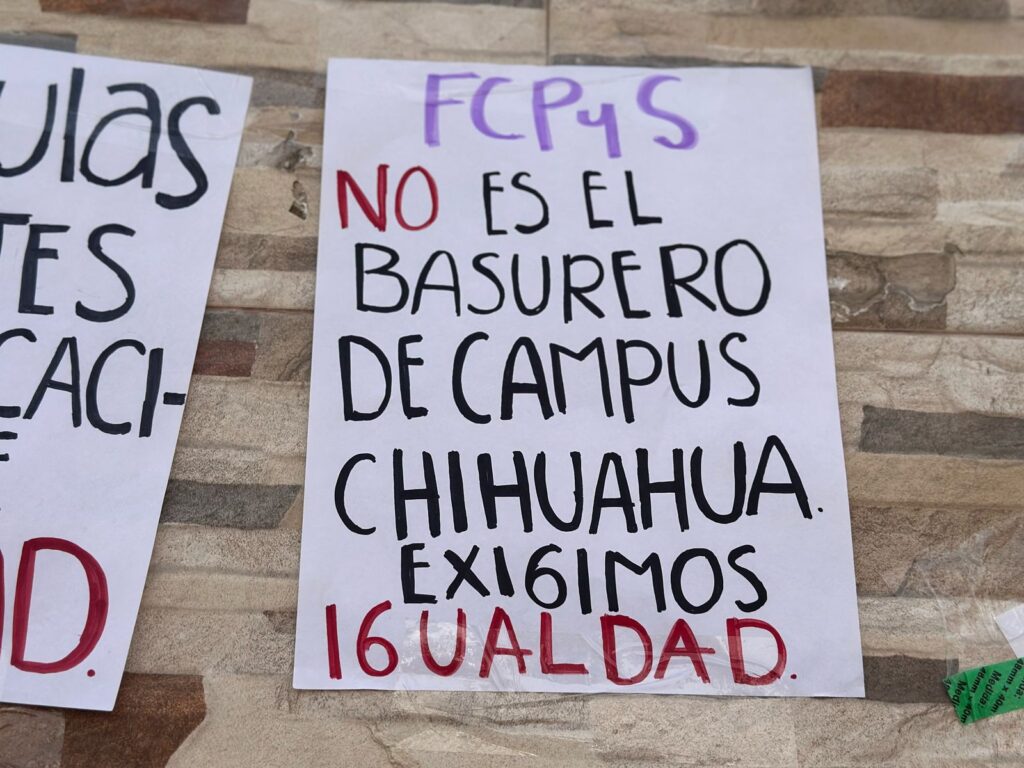 ulas
TES
CACI-
D.
FCPyS
NO ES EL
BASURERO
DE CAMPUS
CHIHUAHUA.
EXIGIMOS
IGUALDAD.
48mm x 40m
Medida: